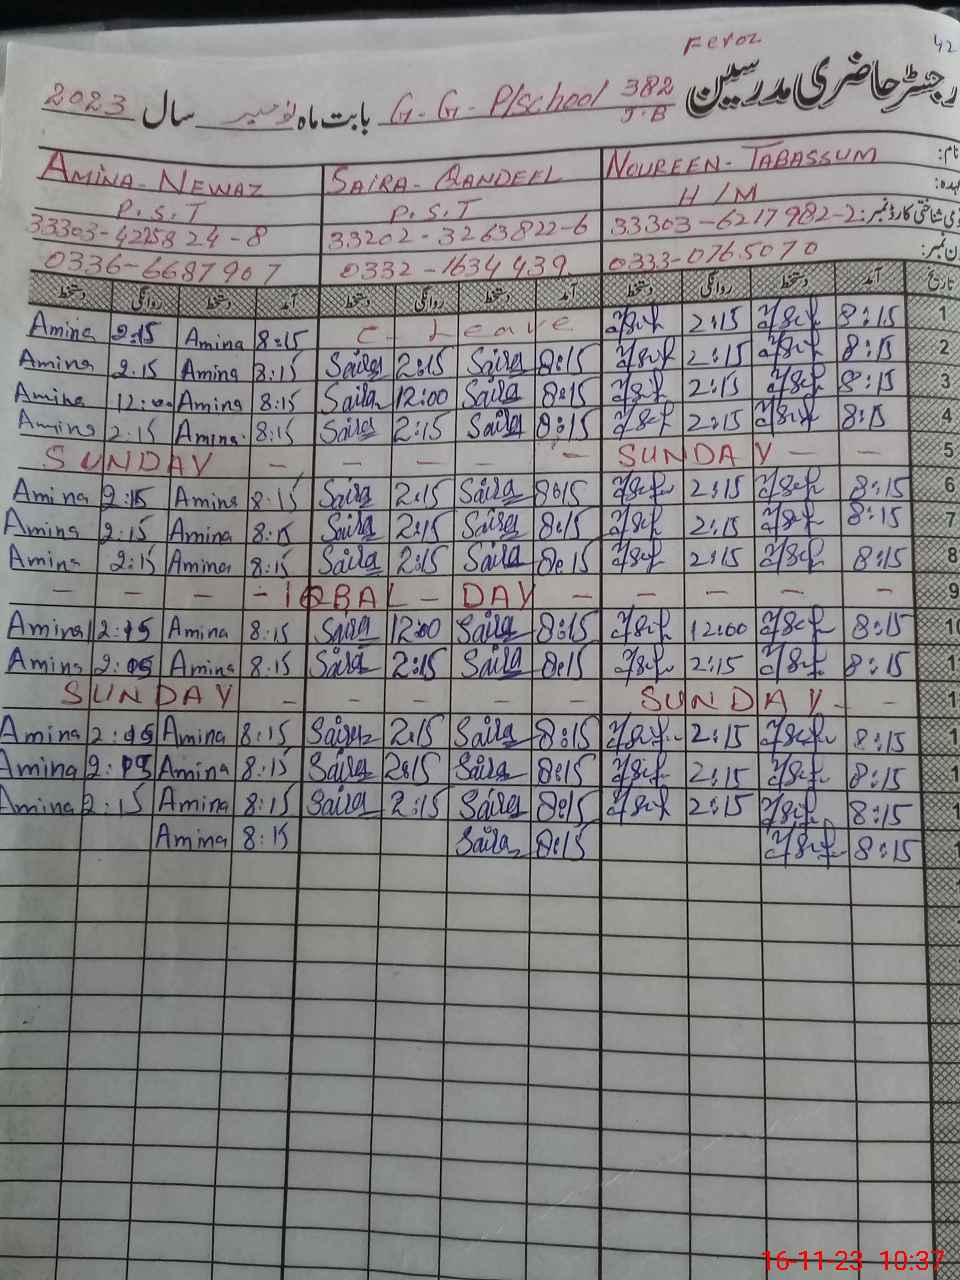 Feroz
42
رجسٹر حاضری مدرسین 382 J.B G.G.P/school بابت ماہ نومبر سال 2023
نام: NOUREEN-TABASSUM SAIRA-QANDEEL AMINA-NEWAZ
عہدہ: H/M P.S.T P.S.T
شناختی کارڈ نمبر: 33303-6217982-2 33202-3263822-6 33303-4225824-8
ن نمبر: 0333-0765070 0332-1634439 0336-6687907
تاریخ آمد دستخط روانگی دستخط آمد دستخط روانگی دستخط آمد دستخط روانگی دستخط
1 8:15 2:15 C. Leave 8:15 Amina 2:15 Amina
2 8:15 2:15 8:15 Saira 2:15 Saira 8:15 Amina 2:15 Amina
3 8:15 2:15 8:15 Saira 12:00 Saira 8:15 Amina 12:00 Amina
4 8:15 2:15 8:15 Saira 2:15 Saira 8:15 Amina 2:15 Amina
5 SUNDAY - - - - - - SUNDAY - -
6 8:15 2:15 8:15 Saira 2:15 Saira 8:15 Amina 2:15 Amina
7 8:15 2:15 8:15 Saira 2:15 Saira 8:15 Amina 2:15 Amina
8 8:15 2:15 8:15 Saira 2:15 Saira 8:15 Amina 2:15 Amina
9 - - - - IQBAL - DAY - - - -
10 8:15 12:00 8:15 Saira 12:00 Saira 8:15 Amina Amina
1 8:15 2:15 8:15 Saira 2:15 Saira 8:15 Amina Amina
1 SUNDAY - - - - - - SUNDAY - -
1 8:15 2:15 8:15 Saira 2:15 Saira 8:15 Amina Amina
1 8:15 2:15 8:15 Saira 2:15 Saira 8:15 Amina Amina
1 8:15 2:15 8:15 Saira 2:15 Saira 8:15 Amina 2:15 Amina
1 8:15 8:15 Saira 8:15 Amina
16-11-23 10:37